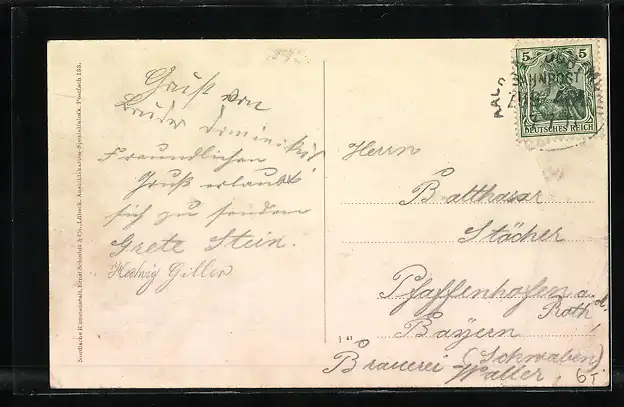 Nordische Kunstanstalt, Ernst Schmidt & Co., Lübeck. Ansichtskarten-Spezialfabrik. Postfach 133.
Gruß von
Bruder Dominikus
Freundlichen
Gruß erlaubt
sich zu senden
Grete Stein.
Hedwig Giller
5 5
BAHNPOST
ZUG
DEUTSCHES REICH
Herrn
Balthasar
Stächer
Pfaffenhofen a. d.
Roth
Bayern
(Schwaben)
Brauerei Walter